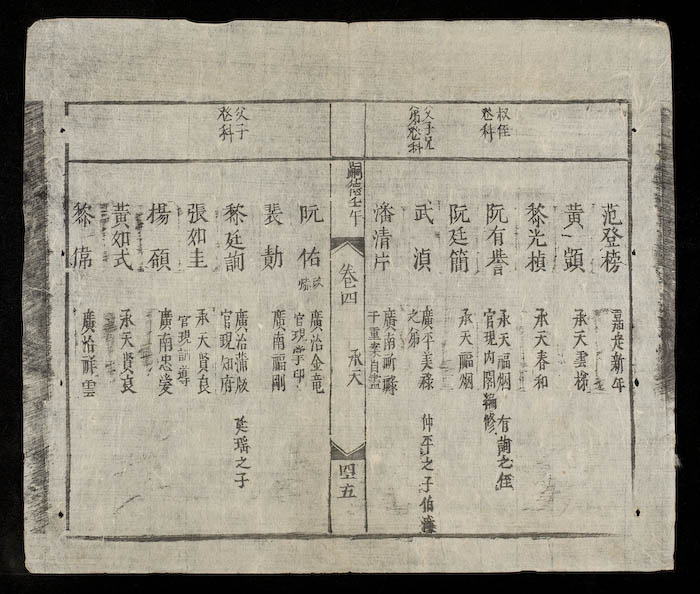 叔侄
登科
范登榜 嘉定新年
黃顗 承天雲梯
黎光楨 承天春和
阮有譽 承天福烟 有蕳之侄
官現內閣編修
阮廷簡 承天福烟
父子兄
弟登科
武湞 廣平美祿 仲平之子伯濂
之弟
潘清片 廣南新祿
干重案自盡
嗣德壬午 卷四 承天 四五
阮佑 改 廣治金竜
官現掌印
裴勛 廣南福剛
父子
登科
黎廷詢 廣治蒲版 廷瑶之子
官現知府
張如圭 承天賢良
官現訓導
楊碩 廣南忠愛
黃如式 承天賢良
黎偉 廣治祥雲